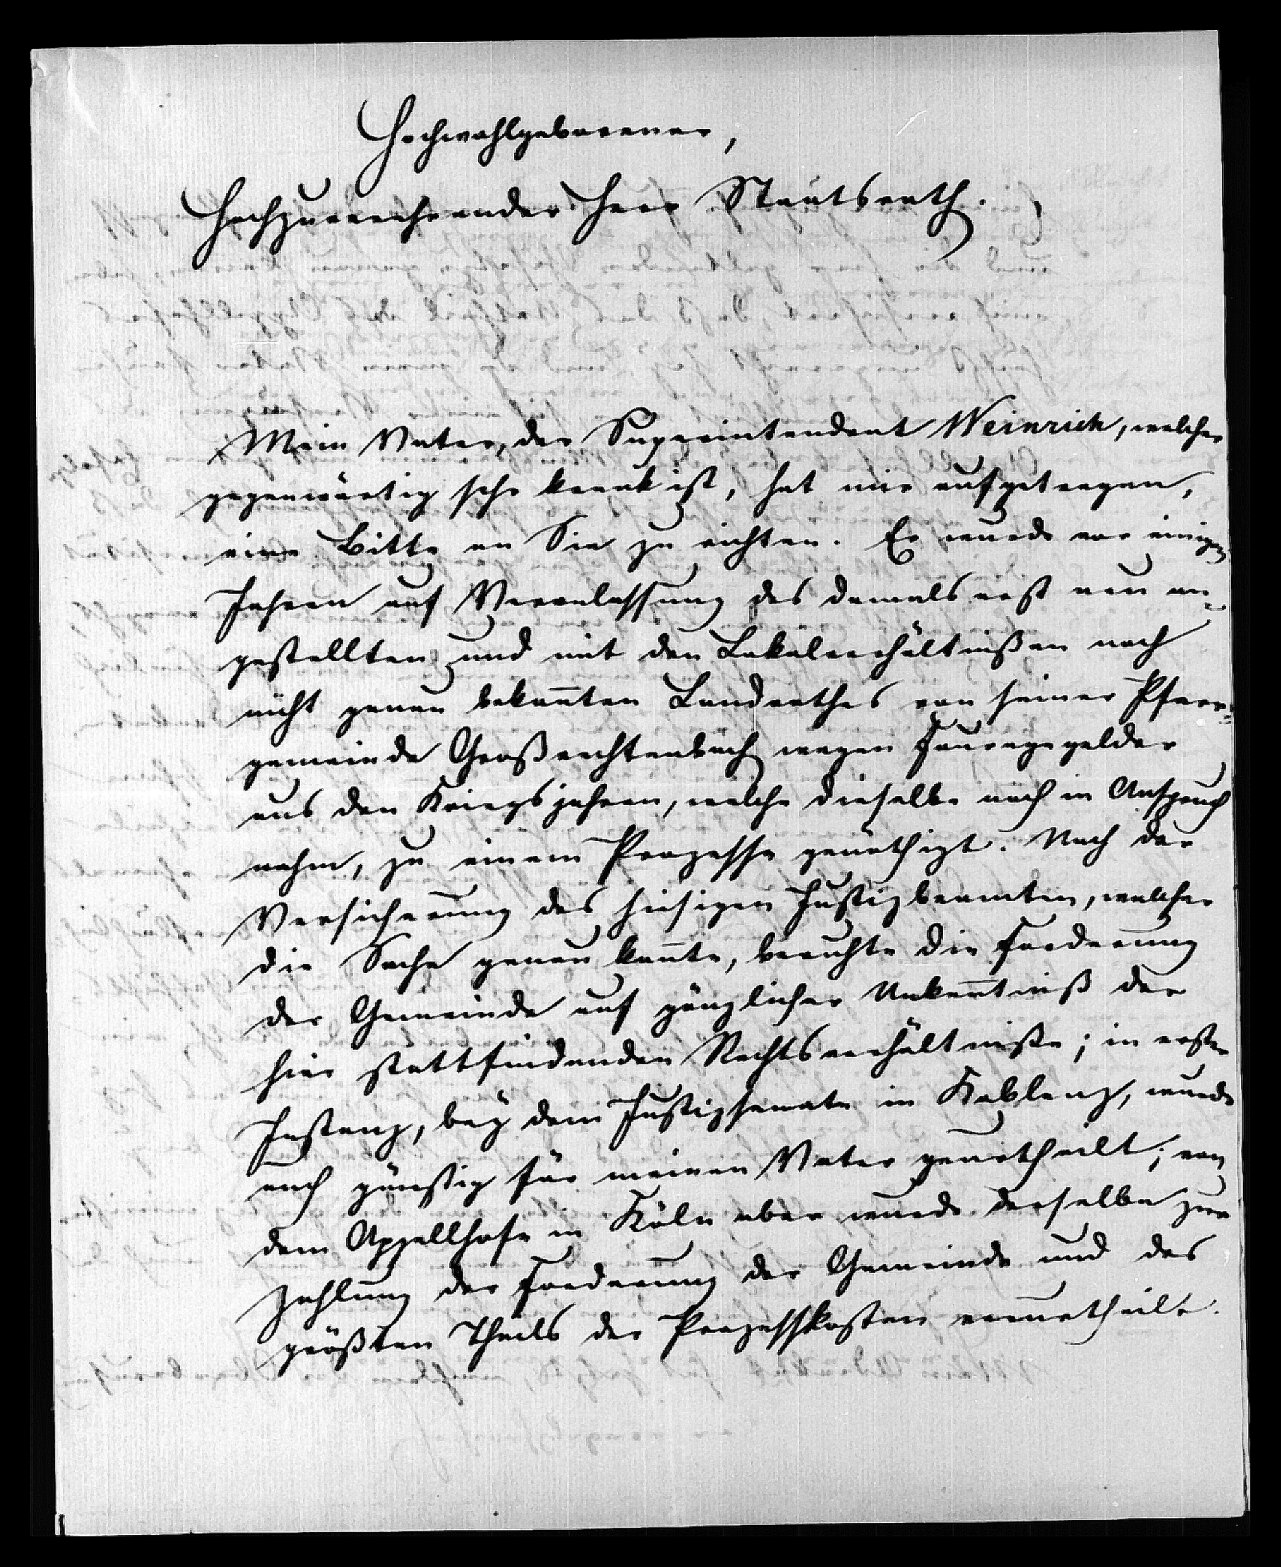 Hochwohlgeborener,
Hochzuverehrender Herr Staatsrath.
Mein Vater, der Superintendent Weinrich, welcher
gegenwärtig sehr krank ist, hat mir aufgetragen,
eine Bitte an Sie zu richten. Er wurde vor einigen
Jahren auf Veranlassung des damals erst neu an-
gestellten und mit den Lokalverhältnißen noch
nicht genau bekan̄ten Landrathes von seiner Pfarr-
gemeinde Großrechtenbach wegen Fouragegelder
aus den Kriegsjahren, welche dieselbe noch in Anspruch
nahm, zu einem Prozesse genöthigt. Nach der
Versicherung des hiesigen Justizbeamten, welcher
die Sache genau kan̄te, beruhte die Forderung
der Gemeinde auf gänzlicher Unken̄tniß der
hier stattfindenden Rechtsverhältniße; in erster
Instanz, bey dem Justizsenate in Koblenz, wurde
auch günstig für meinen Vater geurtheilt; von
dem Appellhofe in Köln aber wurde derselbe zur
Zahlung der Forderung der Gemeinde und des
größten Theils der Prozeßkosten verurtheilt.